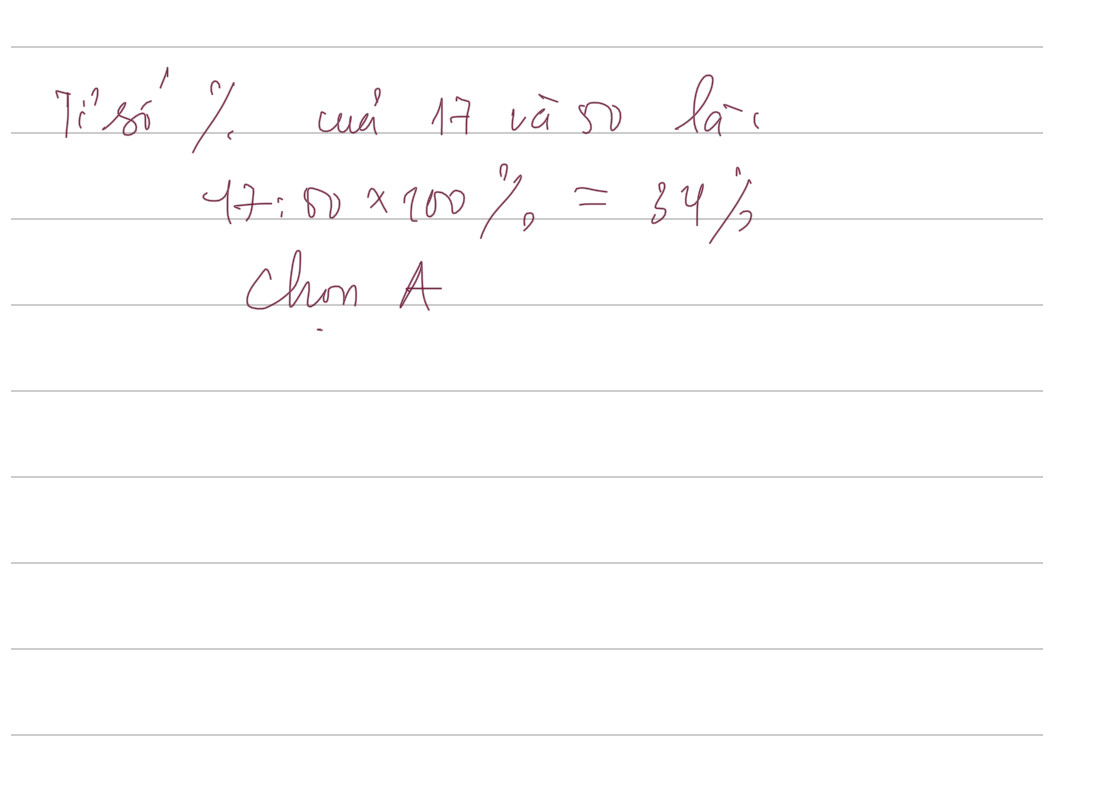 Tỉ số % của 17 và 50 là:
17 : 50 x 100 % = 34 %
Chọn A